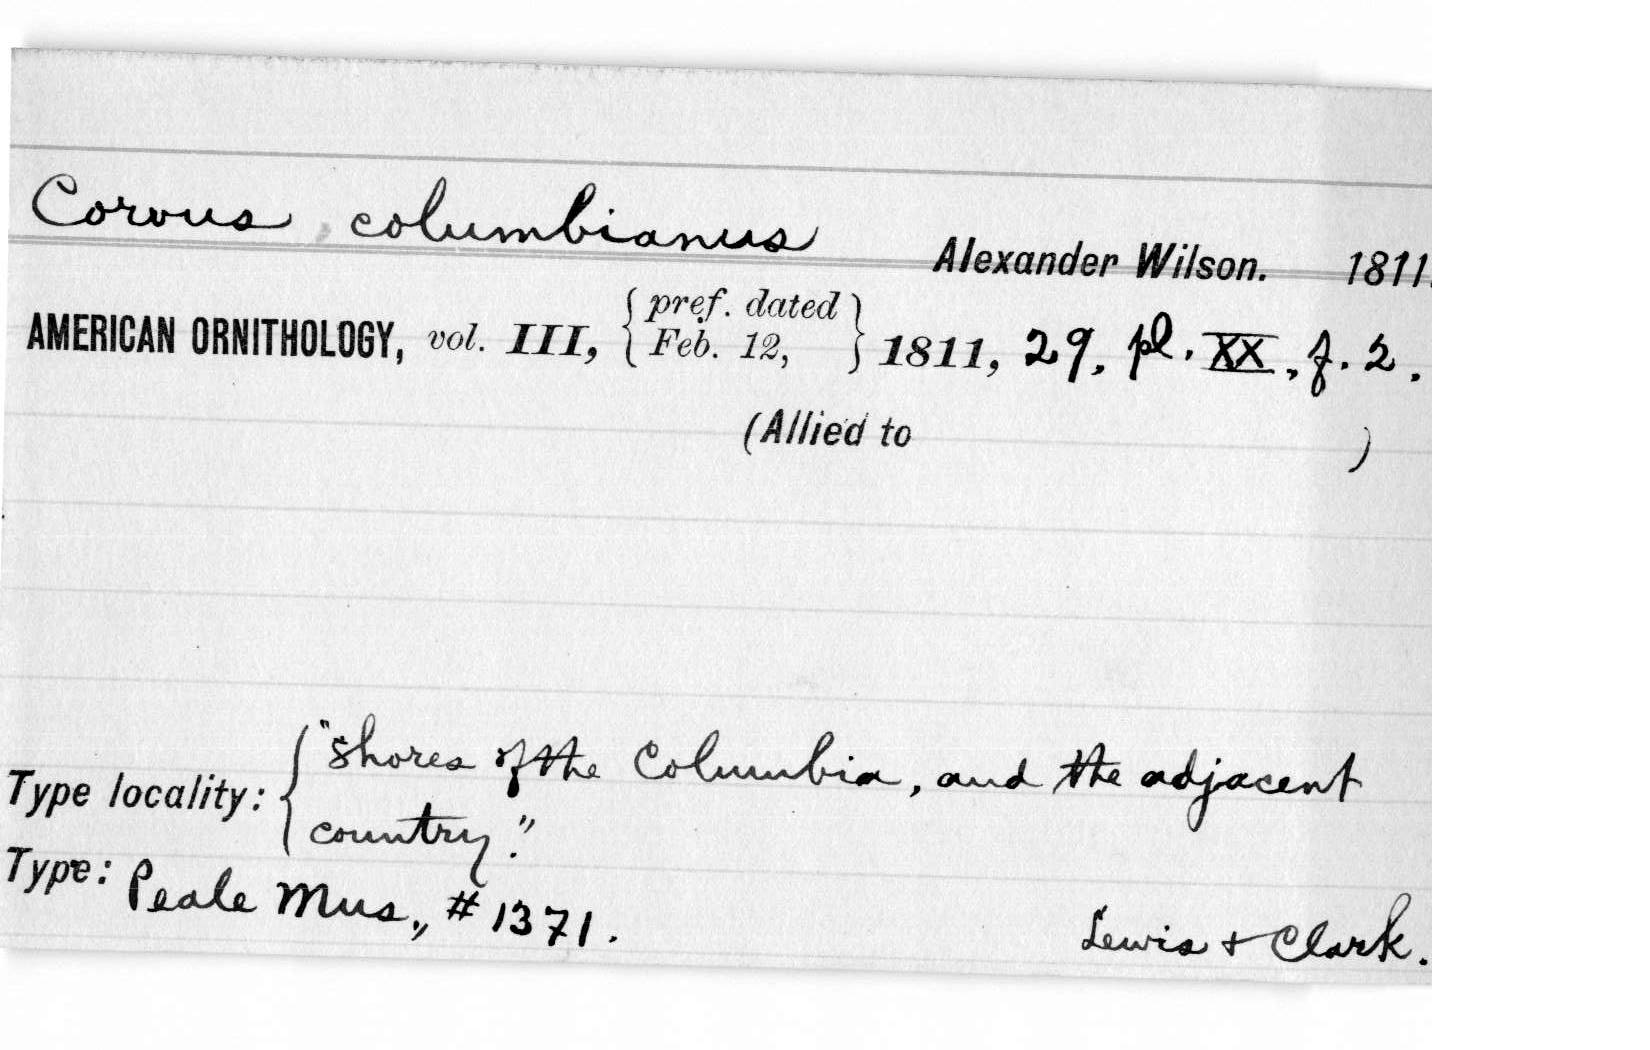 Corvus columbianus Alexander Wilson. 1811.
AMERICAN ORNITHOLOGY, vol. III, { pref. dated Feb. 12, } 1811, 29, pl. XX, f. 2.
(Allied to )
Type locality: { "shores of the Columbia, and the adjacent
country."
Type: Peale Mus., #1371. Lewis + Clark.